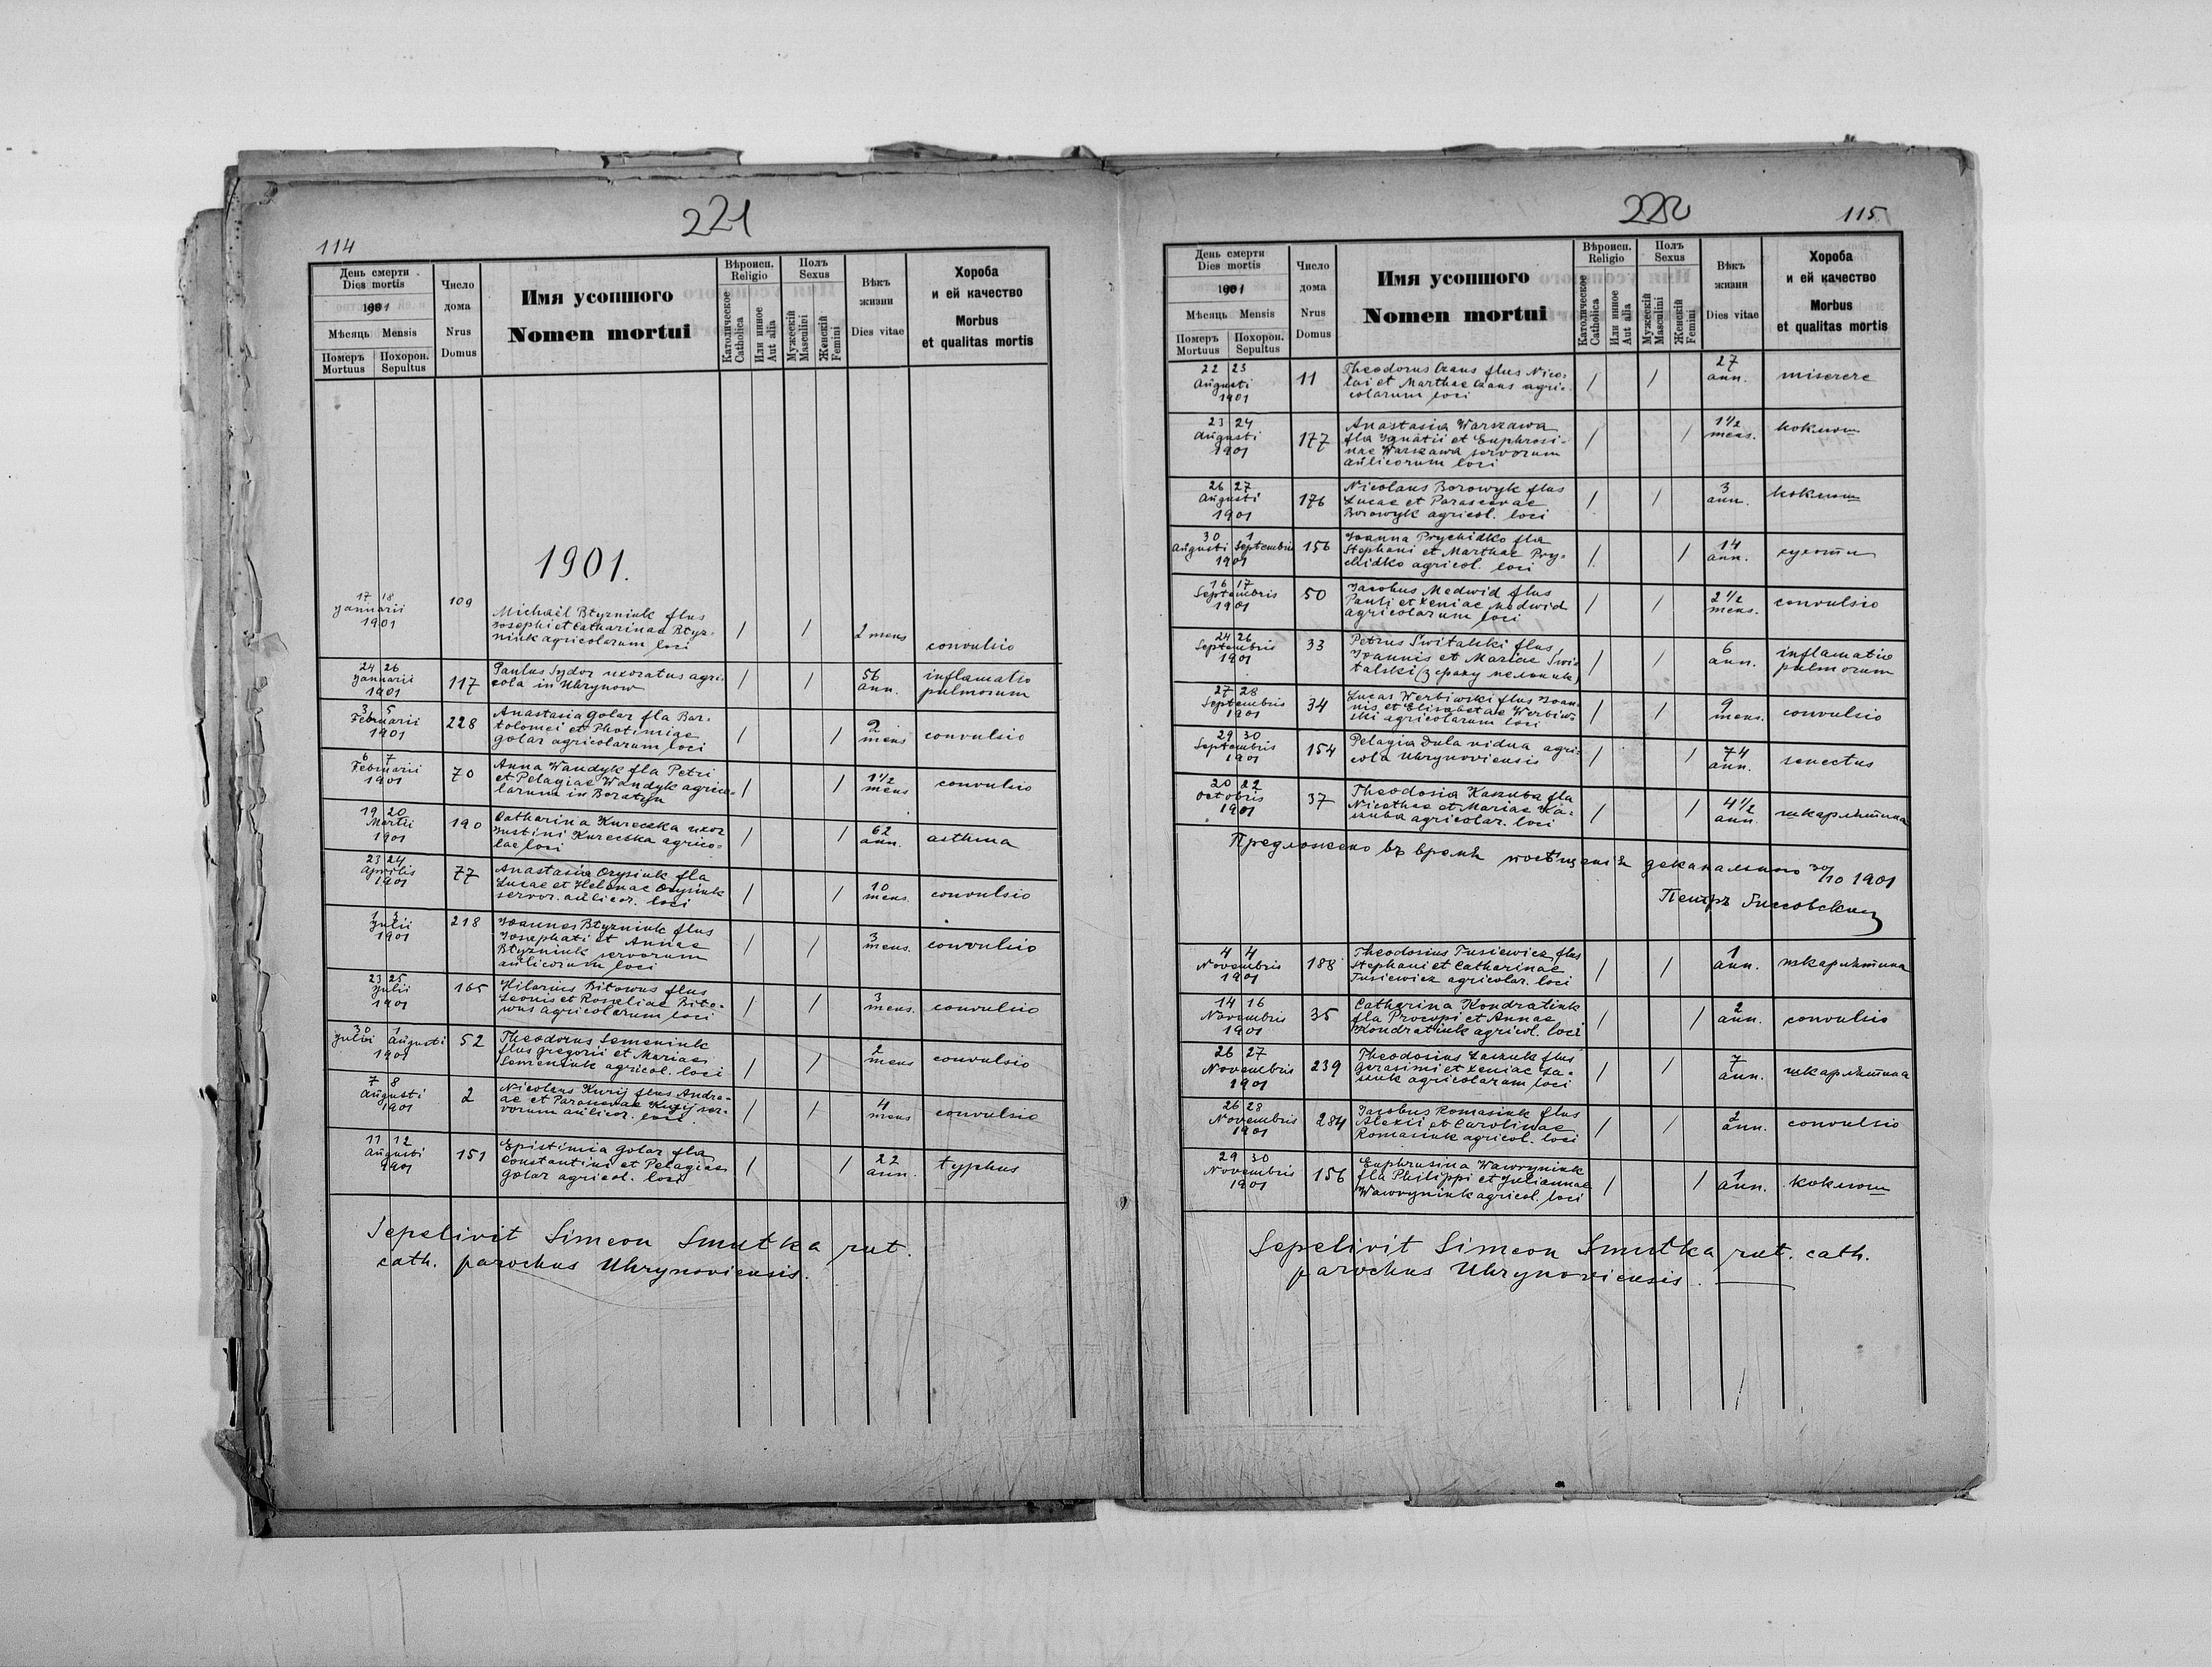 221
114
День смерти
Dies mortis
1901
Мѣсяць Mensis
Померъ Mortuus
Похорон. Sepultus
Число дома
Nrus Domus
Имя усопшого
Nomen mortui
Вѣроисп.
Religio
Католическое Catholica
Или инное Aut alia
Полъ
Sexus
Мужескій Masculini
Женскій Femini
Вѣкъ жизни
Dies vitae
Хороба
и ей качество
Morbus
et qualitas mortis
1901.
17 18 Januarii 1901 109
Michaël Btyzniuk flus
Josephi et Catharinae Btyz-
niuk agricolarum loci
/ / 2 mens convulsio
24 26 Januarii 1901 117
Paulus Sydor uxoratus agri-
cola in Uhrynow
/ / 56 ann. inflamatio pulmorum
3 5 Februarii 1901 228
Anastasia Golar fla Bar-
tolomei et Photimiae
Golar agricolarum loci
/ / 2 mens convulsio
6 7 Februarii 1901 70
Anna Wandyk fla Petri
et Pelagiae Wandyk agrico-
larum in Boratyn
/ / 1 1/2 mens convulsio
19 20 Martii 1901 190
Catharina Kureczka uxor
Justini Kureczka agrico-
lae loci
/ / 62 ann. asthma
23 24 Aprilis 1901 77
Anastasia Orysiuk fla
Lucae et Helenae Orysiuk
servor. aulicor. loci
/ / 10 mens. convulsio
1 3 Julii 1901 218
Joannes Btyzniuk flus
Josaphati et Annae
Btyzniuk servorum
aulicorum loci
/ / 3 mens. convulsio
23 25 Julii 1901 165
Hilarius Bitowus flus
Leonis et Rosaliae Bito-
wus agricolarum loci
/ / 3 mens. convulsio
30 1 Julii Augusti 1901 52
Theodorus Semeniuk
flus Gregorii et Mariae
Semeniuk agricol. loci
/ / 2 mens convulsio
7 8 Augusti 1901 2
Nicolaus Kurij flus Andre-
ae et Parascevae Kurij ser-
vorum aulicor. loci
/ / 4 mens convulsio
11 12 Augusti 1901 151
Epistimia Golar fla
Constantini et Pelagiae
Golar agricol. loci
/ / 22 ann. typhus
Sepelivit Simeon Smutka rut.
cath. parochus Uhrynoviensis.
222
115
День смерти
Dies mortis
1901
Мѣсяць Mensis
Померъ Mortuus
Похорон. Sepultus
Число дома
Nrus Domus
Имя усопшого
Nomen mortui
Вѣроисп.
Religio
Католическое Catholica
Или инное Aut alia
Полъ
Sexus
Мужескій Masculini
Женскій Femini
Вѣкъ жизни
Dies vitae
Хороба
и ей качество
Morbus
et qualitas mortis
22 23 Augusti 1901 11
Theodorus flus Nico-
lai et Marthae agri-
colarum loci
/ / 27 ann. miserere
23 24 Augusti 1901 177
Anastasia Warszawa
fla Ignatii et Euphrosi-
nae Warszawa servorum
aulicorum loci
/ / 1 1/2 mens. коклюш
26 27 Augusti 1901 176
Nicolaus Borowyk flus
Lucae et Parascevae
Borowyk agricol. loci
/ / 3 ann. коклюш
30 1 Augusti Septembris 1901 156
Joanna Prychidko fla
Stephani et Marthae Pry-
chidko agricol. loci
/ / 14 ann. сухоти
16 17 Septembris 1901 50
Jacobus Medwid flus
Pauli et Xeniae Medwid
agricolarum loci
/ / 2 1/2 mens. convulsio
24 26 Septembris 1901 33
Petrus Switalski flus
Joannis et Mariae Swi-
talski
/ / 6 ann. inflamatio pulmorum
27 28 Septembris 1901 34
Lucas Werbiwski flus Joan-
nis et Elisabetae Werbiw-
ski agricolarum loci
/ / 9 mens. convulsio
29 30 Septembris 1901 154
Pelagia Dula vidua agri-
cola Uhrynoviensis
/ / 74 ann. senectus
20 22 Octobris 1901 37
Theodosia Kaszuba fla
Nicethae et Mariae Ka-
szuba agricolar. loci
/ / 4 1/2 ann. шкарлятина
Предложено въ время посѣщенія деканального 30/10 1901
Петръ
4 4 Novembris 1901 188
Theodosius Tusiewicz flus
Stephani et Catharinae
Tusiewicz agricolar. loci
/ / 1 ann. шкарлятина
14 16 Novembris 1901 35
Catharina Kondratiuk
fla Procopi et Annae
Kondratiuk agricol. loci
/ / 2 ann. convulsio
26 27 Novembris 1901 239
Theodosius Laszuk flus
Gerasimi et Xeniae La-
szuk agricolarum loci
/ / 7 ann. шкарлятина
26 28 Novembris 1901 284
Jacobus Romasiuk flus
Alexii et Carolinae
Romasiuk agricol. loci
/ / 2 ann. convulsio
29 30 Novembris 1901 156
Euphrusina Wawryniuk
fla Philippi et Juliannae
Wawryniuk agricol. loci
/ / 1 ann. коклюш
Sepelivit Simeon Smutka rut. cath.
parochus Uhrynoviensis.